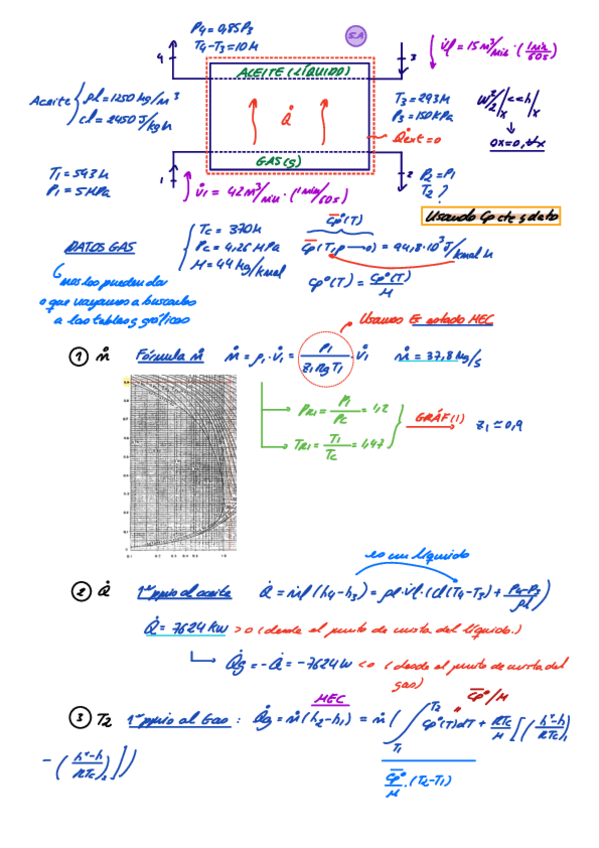 P4 = 0,85P3
T4-T3 = 10K
S.A
V̇l = 15 m³/min · (1min/60s)
4
3
ACEITE (LÍQUIDO)
Aceite { ρl = 1250 kg/m³
cl = 2450 J/kgK
Q̇
T3 = 293K
P3 = 150KPa
w²/2|x << h|x
Q̇ext = 0
ax = 0, ∀x
GAS(g)
T1 = 543K
P1 = 5MPa
1
2
V̇1 = 42m³/min · (1min/60s)
P2 = P1
T2?
Usando Cp cte y dato
DATOS GAS
{ Tc = 370K
Pc = 4,26 MPa
M = 44 kg/kmol
c̄p°(T)
c̄p(T,p→0) = 94,8·10³ J/kmol K
cp°(T) = c̄p°(T)/M
nos los pueden dar
o que vayamos a buscarlos
a las tablas y gráficos
Usamos Ec estado MEC
1 ṁ Fórmula ṁ ṁ = ρ1·V̇1 = P1/(z1RgT1) · V̇1 ṁ = 37,8 kg/s
PR1 = P1/Pc = 1,2
TR1 = T1/Tc = 1,47
GRÁF(1)
z1 ≃ 0,9
es un líquido
2 Q̇ 1er ppio al aceite Q̇ = ṁl(h4-h3) = ρl·V̇l·(cl(T4-T3) + (P4-P3)/ρl)
Q̇ = 7624 KW > 0 (desde el punto de vista del líquido.)
Q̇g = -Q̇ = -7624W < 0 (desde el punto de vista del
gas)
MEC
c̄p°/M
3 T2 1er ppio al Gas : Q̇g = ṁ(h2-h1) = ṁ( ∫T1T2 cp°(T)dT + RTc/M [((h*-h)/RTc)1
- ((h*-h)/RTc)2 ])
c̄p°/M · (T2-T1)